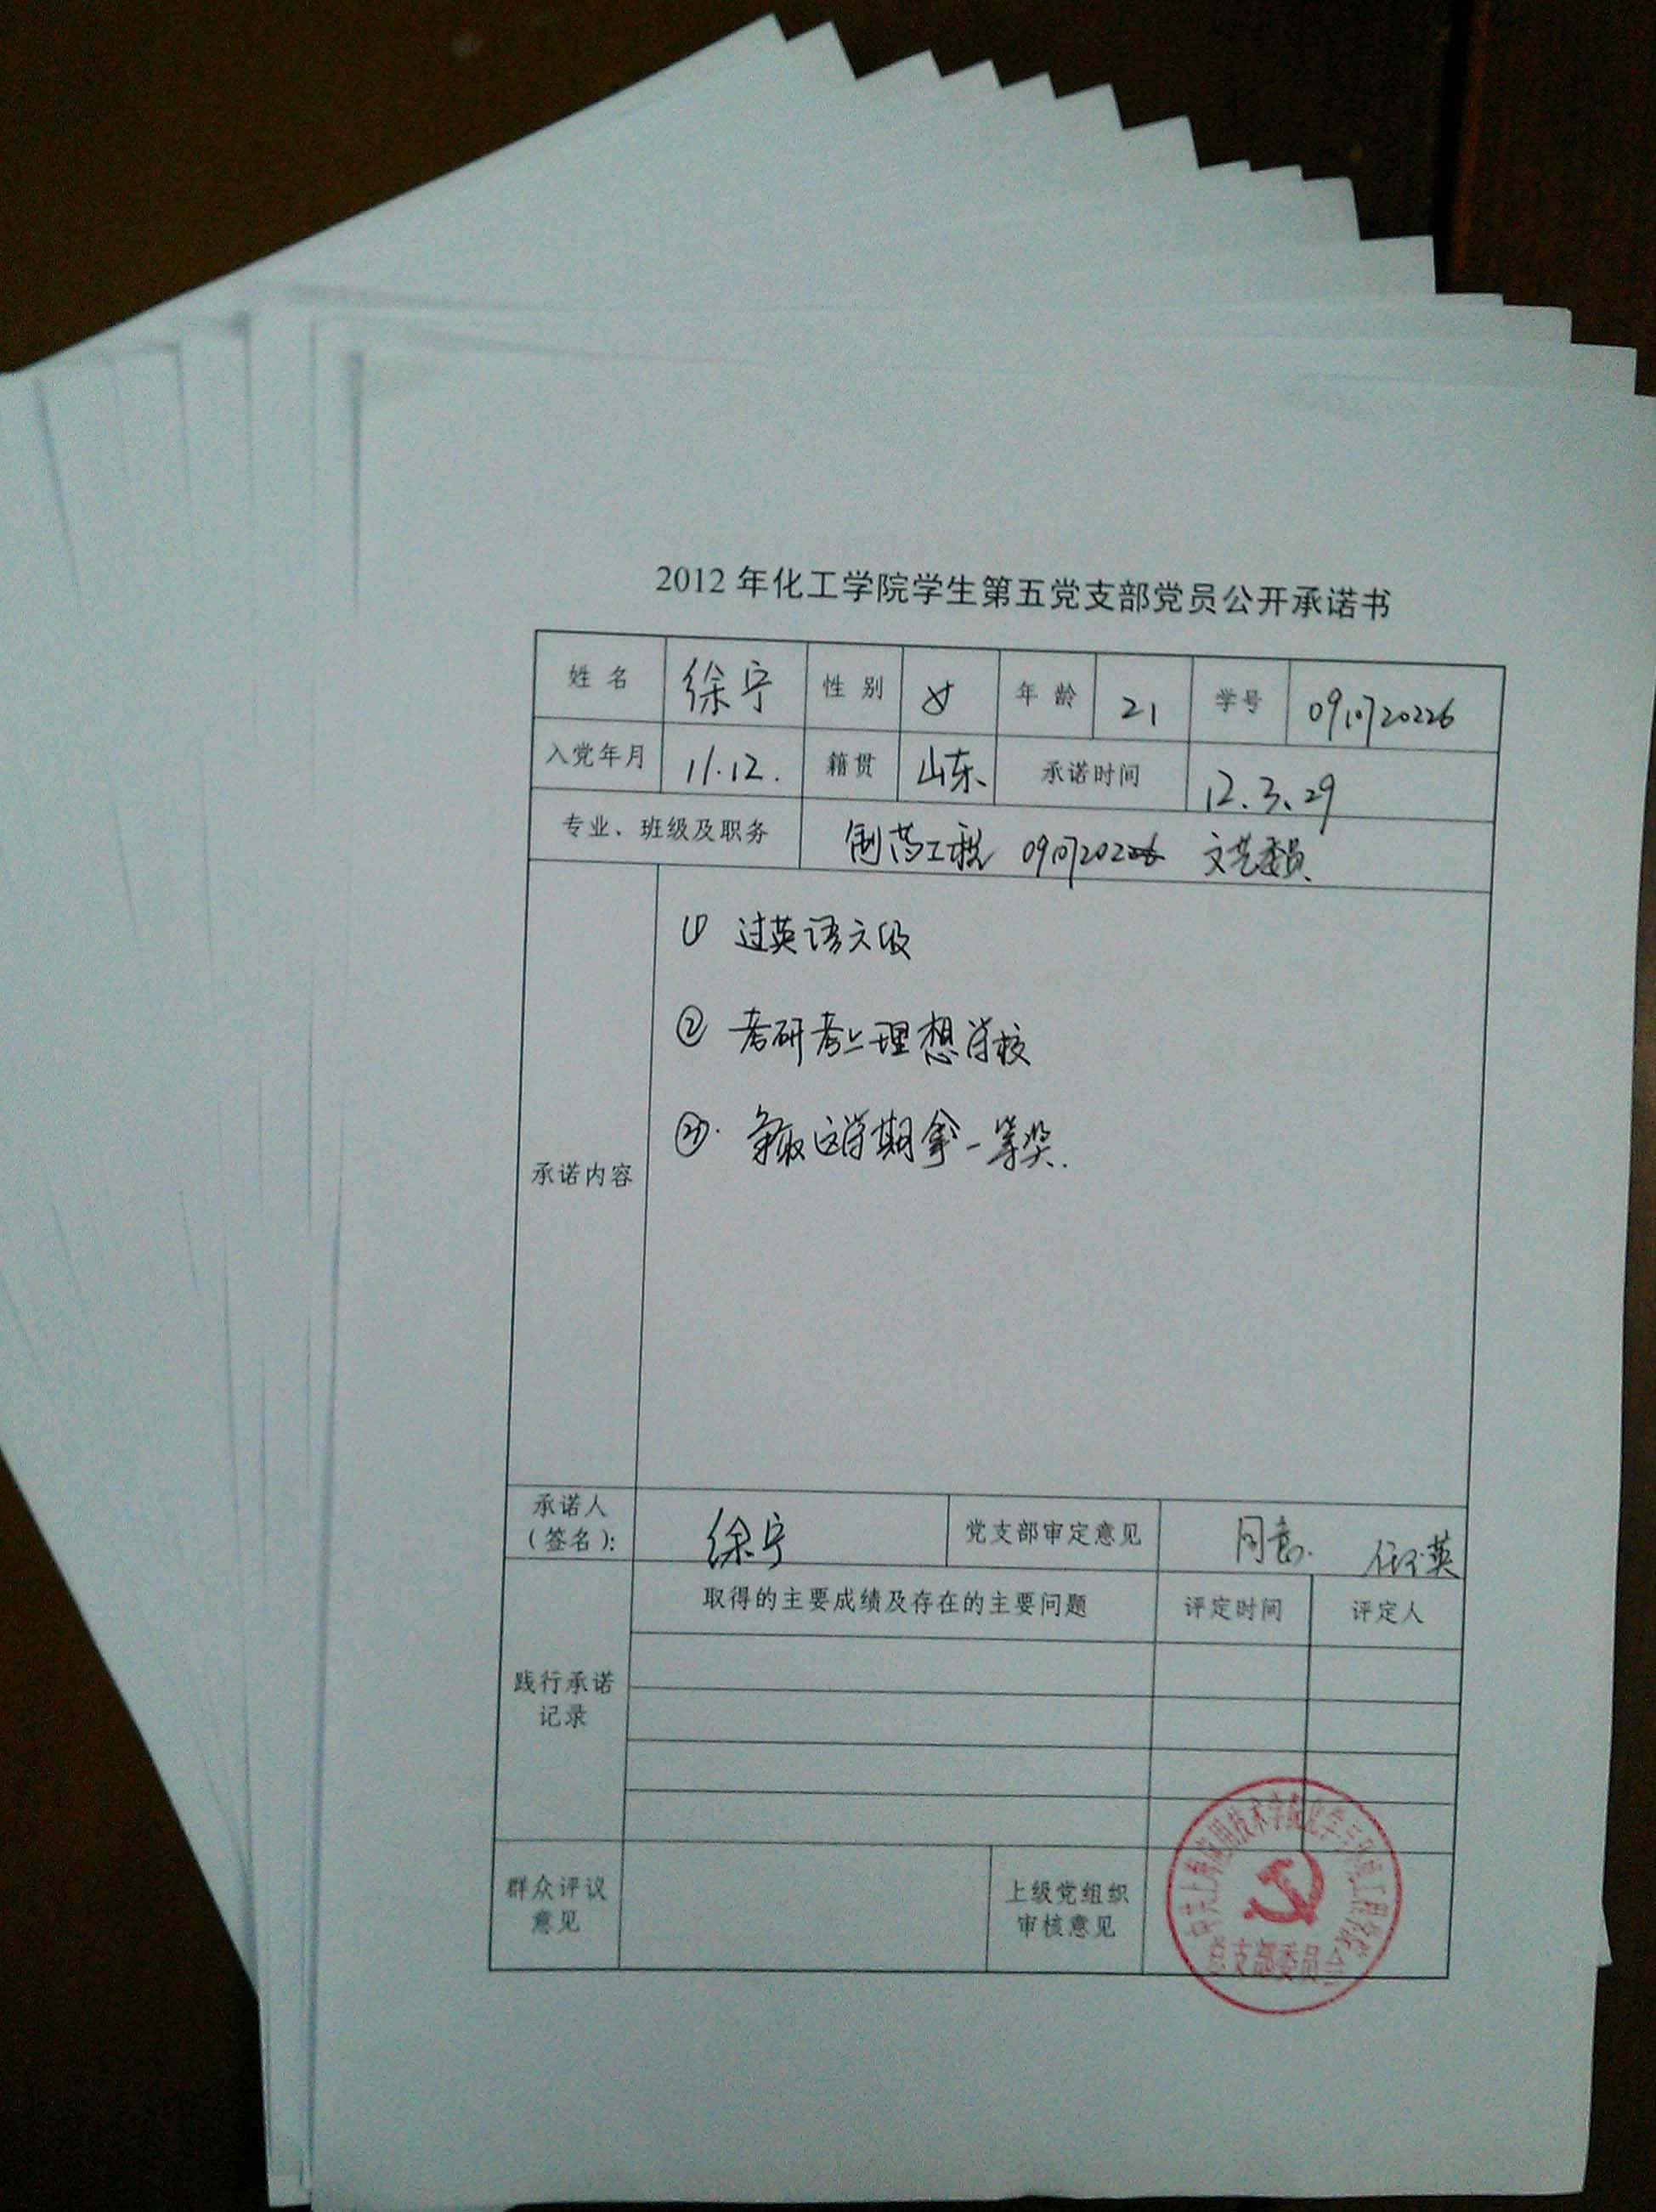 2012 年化工学院学生第五党支部党员公开承诺书
姓 名 徐宁 性 别 女 年 龄 21 学号 0910720226
入党年月 11.12. 籍贯 山东 承诺时间 12.3.29
专业、班级及职务 制药工程 09107202 文艺委员
承诺内容
① 过英语六级
② 考研考上理想学校
③. 争取这学期拿一等奖.
承诺人
（签名）：
徐宁 党支部审定意见 同意.
践行承诺
记录
取得的主要成绩及存在的主要问题 评定时间 评定人
群众评议
意见
上级党组织
审核意见
中共上海应用技术学院化学与环境工程学院
总支部委员会